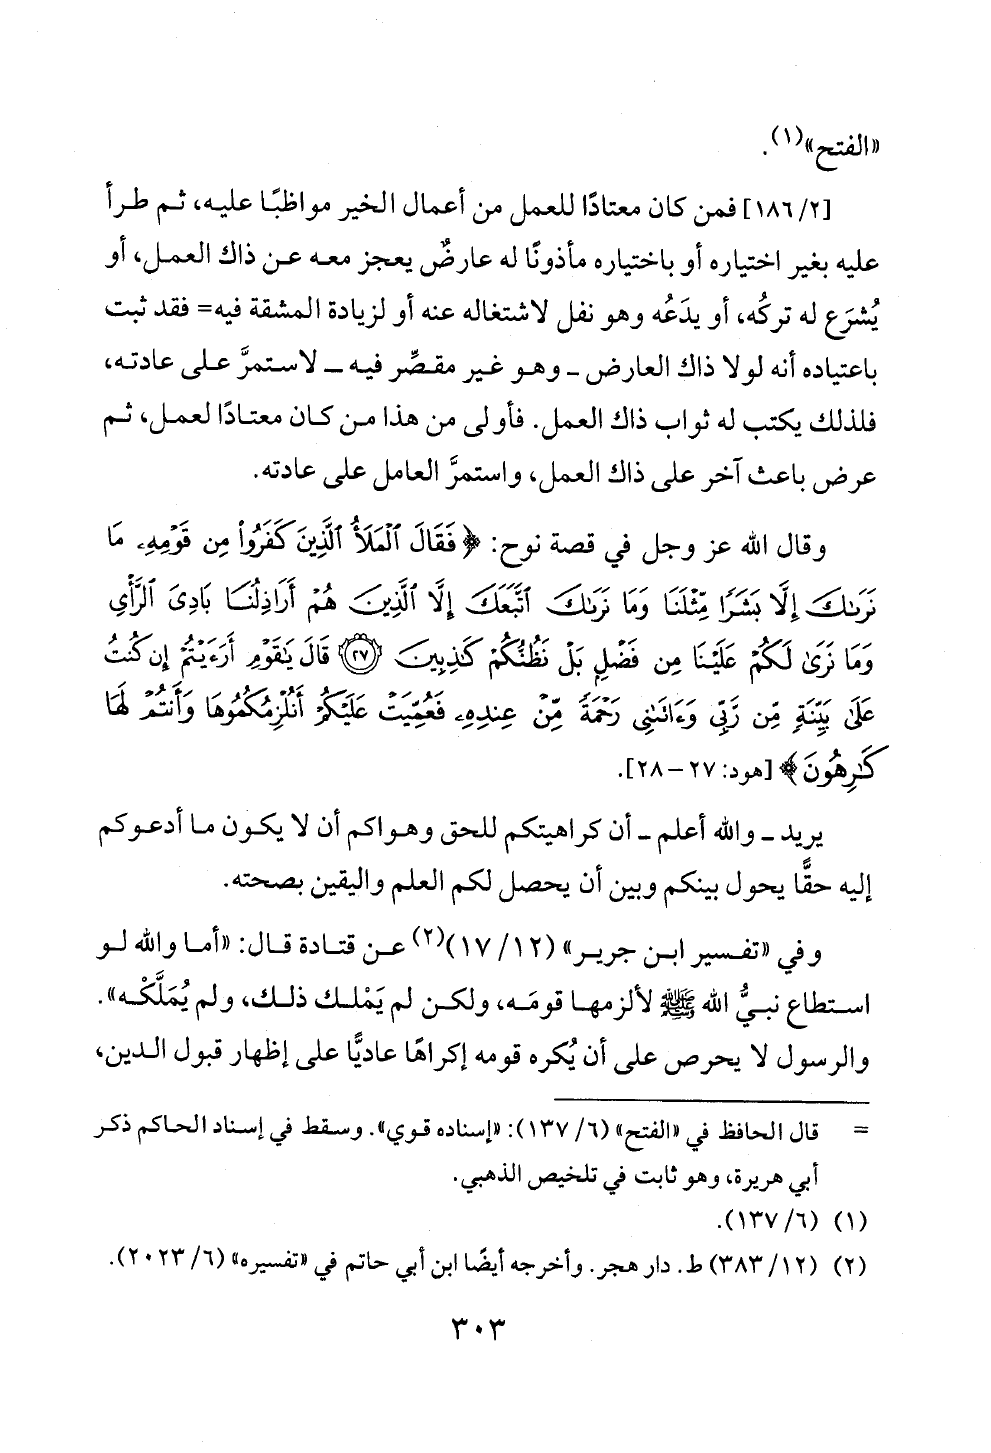 «الفتح»(١).
[٢/ ١٨٦] فمن كان معتادًا للعمل من أعمال الخير مواظبًا عليه، ثم طرأ
عليه بغير اختياره أو باختياره مأذونًا له عارضٌ يعجز معه عن ذاك العمل، أو
يُشرَع له تركُه، أو يدَعُه وهو نفل لاشتغاله عنه أو لزيادة المشقة فيه= فقد ثبت
باعتياده أنه لولا ذاك العارض ـ وهو غير مقصِّر فيه ـ لاستمرَّ على عادته،
فلذلك يكتب له ثواب ذاك العمل. فأولى من هذا من كان معتادًا لعمل، ثم
عرض باعث آخر على ذاك العمل، واستمرَّ العامل على عادته.
وقال الله عز وجل في قصة نوح: ﴿فَقَالَ ٱلْمَلَأُ ٱلَّذِينَ كَفَرُواْ مِن قَوْمِهِۦ مَا
نَرَىٰكَ إِلَّا بَشَرًا مِّثْلَنَا وَمَا نَرَىٰكَ ٱتَّبَعَكَ إِلَّا ٱلَّذِينَ هُمْ أَرَاذِلُنَا بَادِىَ ٱلرَّأْىِ
وَمَا نَرَىٰ لَكُمْ عَلَيْنَا مِن فَضْلٍۭ بَلْ نَظُنُّكُمْ كَٰذِبِينَ ﴿٢٧﴾ قَالَ يَٰقَوْمِ أَرَءَيْتُمْ إِن كُنتُ
عَلَىٰ بَيِّنَةٍ مِّن رَّبِّى وَءَاتَىٰنِى رَحْمَةً مِّنْ عِندِهِۦ فَعُمِّيَتْ عَلَيْكُمْ أَنُلْزِمُكُمُوهَا وَأَنتُمْ لَهَا
كَٰرِهُونَ﴾ [هود: ٢٧ – ٢٨].
يريد ـ والله أعلم ـ أن كراهيتكم للحق وهواكم أن لا يكون ما أدعوكم
إليه حقًّا يحول بينكم وبين أن يحصل لكم العلم واليقين بصحته.
وفي «تفسير ابن جرير» (١٢/ ١٧)(٢) عن قتادة قال: «أما والله لو
استطاع نبيُّ الله ﷺ لألزمها قومَه، ولكن لم يَمْلك ذلك، ولم يُمَلَّكْه».
والرسول لا يحرص على أن يُكره قومه إكراهًا عاديًّا على إظهار قبول الدين،
= قال الحافظ في «الفتح» (٦/ ١٣٧): «إسناده قوي». وسقط في إسناد الحاكم ذكر
أبي هريرة، وهو ثابت في تلخيص الذهبي.
(١) (٦/ ١٣٧).
(٢) (١٢/ ٣٨٣) ط. دار هجر. وأخرجه أيضًا ابن أبي حاتم في «تفسيره» (٦/ ٢٠٢٣).
٣٠٣